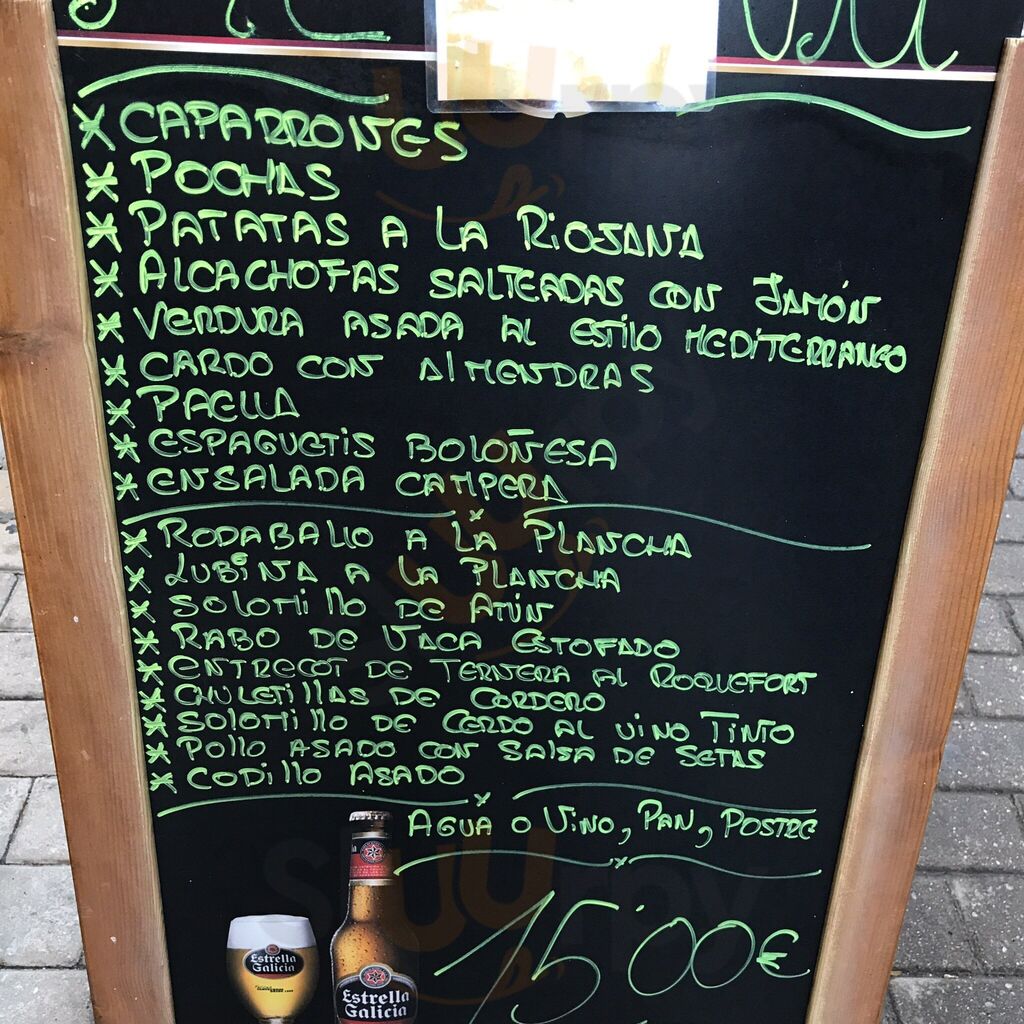 CAPARRONES
POCHAS
PATATAS A LA RIOJANA
ALCACHOFAS SALTEADAS CON JAMÓN
VERDURA ASADA AL ESTILO MEDITERRANEO
CARDO CON ALMENDRAS
PAELLA
ESPAGUETIS BOLOÑESA
ENSALADA CAMPERA
RODABALLO A LA PLANCHA
LUBINA A LA PLANCHA
SOLOMILLO DE ATÚN
RABO DE VACA ESTOFADO
ENTRECOT DE TERNERA AL ROQUEFORT
CHULETILLAS DE CORDERO
SOLOMILLO DE CERDO AL VINO TINTO
POLLO ASADO CON SALSA DE SETAS
CODILLO ASADO
AGUA O VINO, PAN, POSTRE
15'00€
Estrella Galicia
Estrella Galicia